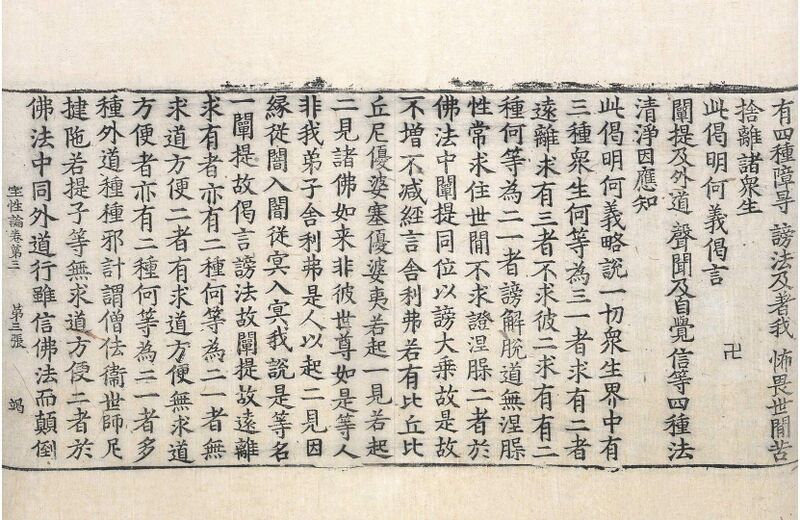 有四種障㝵 謗法及著我 怖畏世間苦
捨離諸衆生
此偈明何義偈言 卍
闡提及外道 聲聞及自覺 信等四種法
清淨因應知
此偈明何義略說一切衆生界中有
三種衆生何等為三一者求有二者
遠離求有三者不求彼二求有有二
種何等為二一者謗解脫道無涅槃
性常求住世間不求證涅槃二者於
佛法中闡提同位以謗大乗故是故
不增不减經言舍利弗若有比丘比
丘尼優婆塞優婆夷若起一見若起
二見諸佛如来非彼世尊如是等人
非我弟子舍利弗是人以起二見因
縁從闇入闇從冥入冥我說是等名
一闡提故偈言謗法故闡提故遠離
求有者亦有二種何等為二一者無
求道方便二者有求道方便無求道
方便者亦有二種何等為二一者多
種外道種種邪計謂僧佉衛世師尼
揵陁若提子等無求道方便二者於
佛法中同外道行雖信佛法而顛倒
性論卷第三 第三張